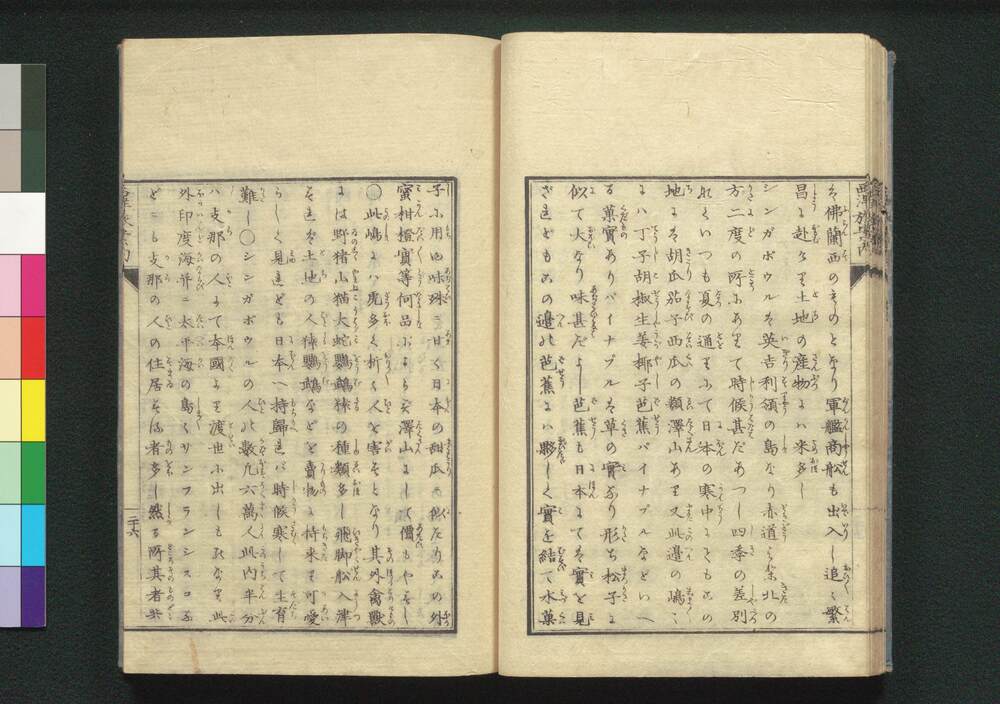 を佛蘭西のものとなり軍艦商船も出入し追々繁
昌に赴くよし土地の産物には米多し
シンガポウルは英吉利領の島なり赤道より北の
方二度の所にありて時候甚だあつし四季の差別
なくいつも夏の通りにて日本の寒中にてもこの
地には胡瓜茄子西瓜の類澤山あり又此邊の嶋々
には丁子胡椒生姜椰子芭蕉パイナプルなどいへ
る菓實ありパイナプルは草の實なり形ち松子に
似て大なり味甚だよし芭蕉も日本にては實を見
ざれどもこの邊の芭蕉には夥しく實を結て水菓
子に用ゆ味殊に甘く日本の甜瓜に似たりこの外
蜜柑橙實等何品によらず澤山にして價もやすし
〇此嶋には虎多く折々人を害すとなり其外禽獸
には野猪山猫大蛇鸚鵡猿の種類多し飛脚船入津
すれば土地の人猿鸚鵡などを賣物に持来り可愛
らしく見ゆれども日本へ持歸れば時候寒して生育
難し〇シンガポウルの人の數凡六萬人此内半分
ハ支那の人にて本國より渡世に出しものなり此
外印度海并ニ太平海の島々サンフランシスコな
どにも支那の人の住居する者多し然る所其者共
二十六